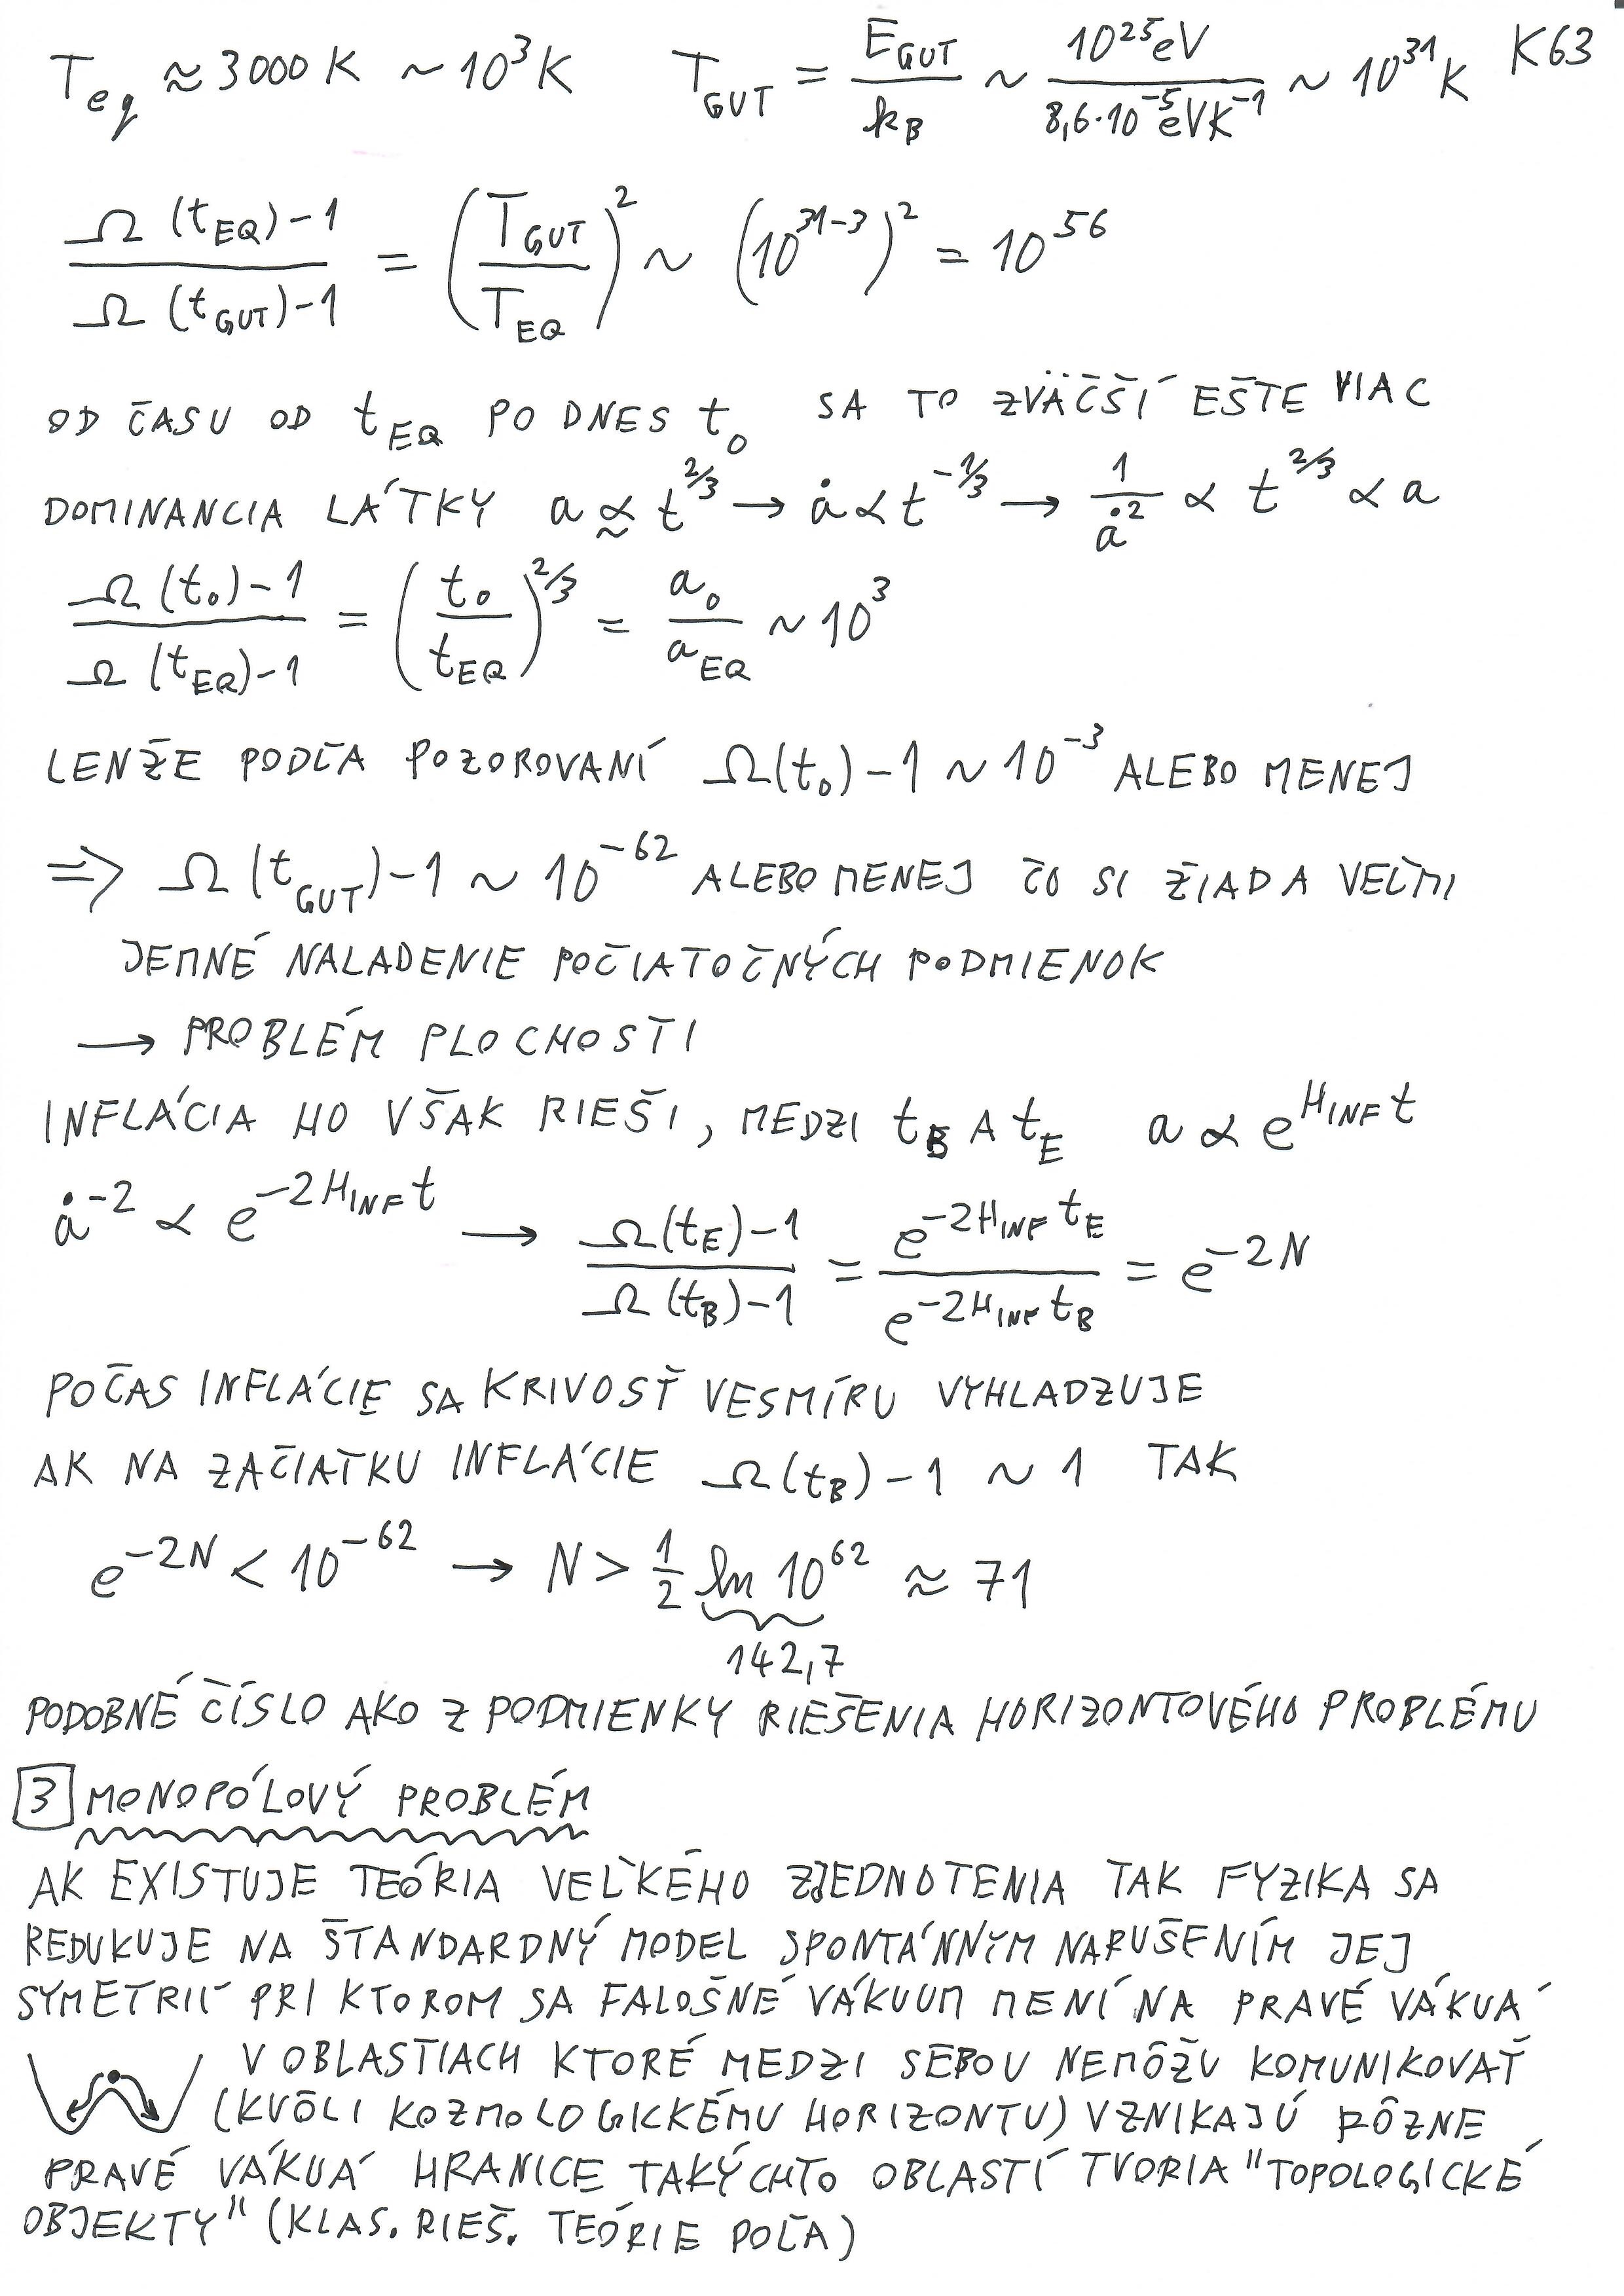 T_eq ≈ 3000 K ~ 10³ K   T_GUT = E_GUT / k_B ~ 10²⁵ eV / 8,6·10⁻⁵ eVK⁻¹ ~ 10³¹ K   K63
(Ω(t_EQ)-1) / (Ω(t_GUT)-1) = (T_GUT / T_EQ)² ~ (10³¹⁻³)² = 10⁵⁶
OD ČASU OD t_EQ PO DNES t₀ SA TO ZVÄČŠÍ EŠTE VIAC
DOMINANCIA LÁTKY a ∝ t^{2/3} → ȧ ∝ t^{-1/3} → 1/ȧ² ∝ t^{2/3} ∝ a
(Ω(t₀)-1) / (Ω(t_EQ)-1) = (t₀ / t_EQ)^{2/3} = a₀ / a_EQ ~ 10³
LENŽE PODĽA POZOROVANÍ Ω(t₀)-1 ~ 10⁻³ ALEBO MENEJ
⇒ Ω(t_GUT)-1 ~ 10⁻⁶² ALEBO MENEJ ČO SI ŽIADA VEĽMI
JEMNÉ NALADENIE POČIATOČNÝCH PODMIENOK
→ PROBLÉM PLOCHOSTI
INFLÁCIA HO VŠAK RIEŠI, MEDZI t_B A t_E   a ∝ e^{H_INF t}
ȧ⁻² ∝ e^{-2H_INF t} → (Ω(t_E)-1) / (Ω(t_B)-1) = e^{-2H_INF t_E} / e^{-2H_INF t_B} = e^{-2N}
POČAS INFLÁCIE SA KRIVOSŤ VESMÍRU VYHLADZUJE
AK NA ZAČIATKU INFLÁCIE Ω(t_B)-1 ~ 1 TAK
e^{-2N} < 10⁻⁶² → N > 1/2 ln 10⁶² ≈ 71
142,7
PODOBNÉ ČÍSLO AKO Z PODMIENKY RIEŠENIA HORIZONTOVÉHO PROBLÉMU
3 MONOPÓLOVÝ PROBLÉM
AK EXISTUJE TEÓRIA VEĽKÉHO ZJEDNOTENIA TAK FYZIKA SA
REDUKUJE NA ŠTANDARDNÝ MODEL SPONTÁNNYM NARUŠENÍM JEJ
SYMETRIÍ PRI KTOROM SA FALOŠNÉ VÁKUUM MENÍ NA PRAVÉ VÁKUÁ
V OBLASTIACH KTORÉ MEDZI SEBOU NEMÔŽU KOMUNIKOVAŤ
(KVÔLI KOZMOLOGICKÉMU HORIZONTU) VZNIKAJÚ RÔZNE
PRAVÉ VÁKUÁ HRANICE TAKÝCHTO OBLASTÍ TVORIA "TOPOLOGICKÉ
OBJEKTY" (KLAS. RIEŠ. TEÓRIE POĽA)